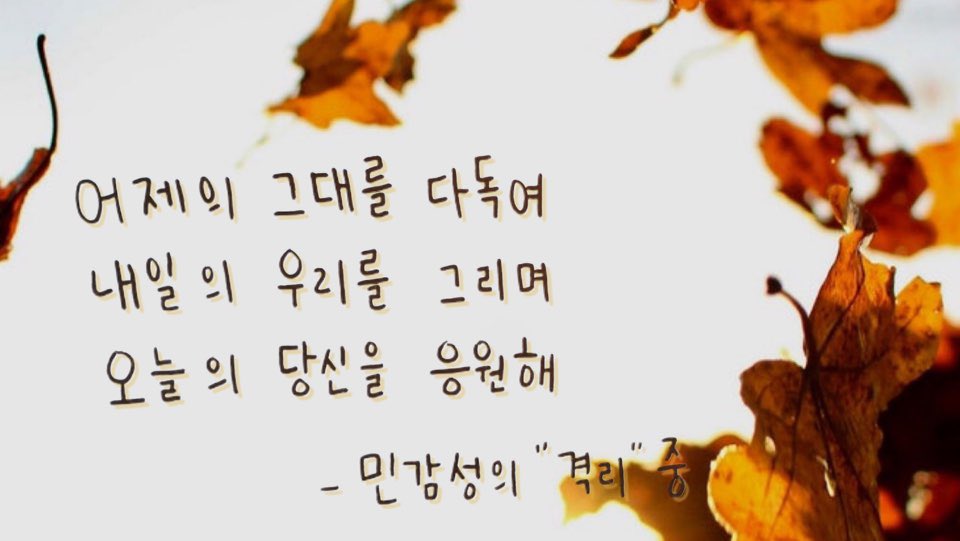 어제의 그대를 다독여
내일의 우리를 그리며
오늘의 당신을 응원해
- 민감성의 "격리" 중